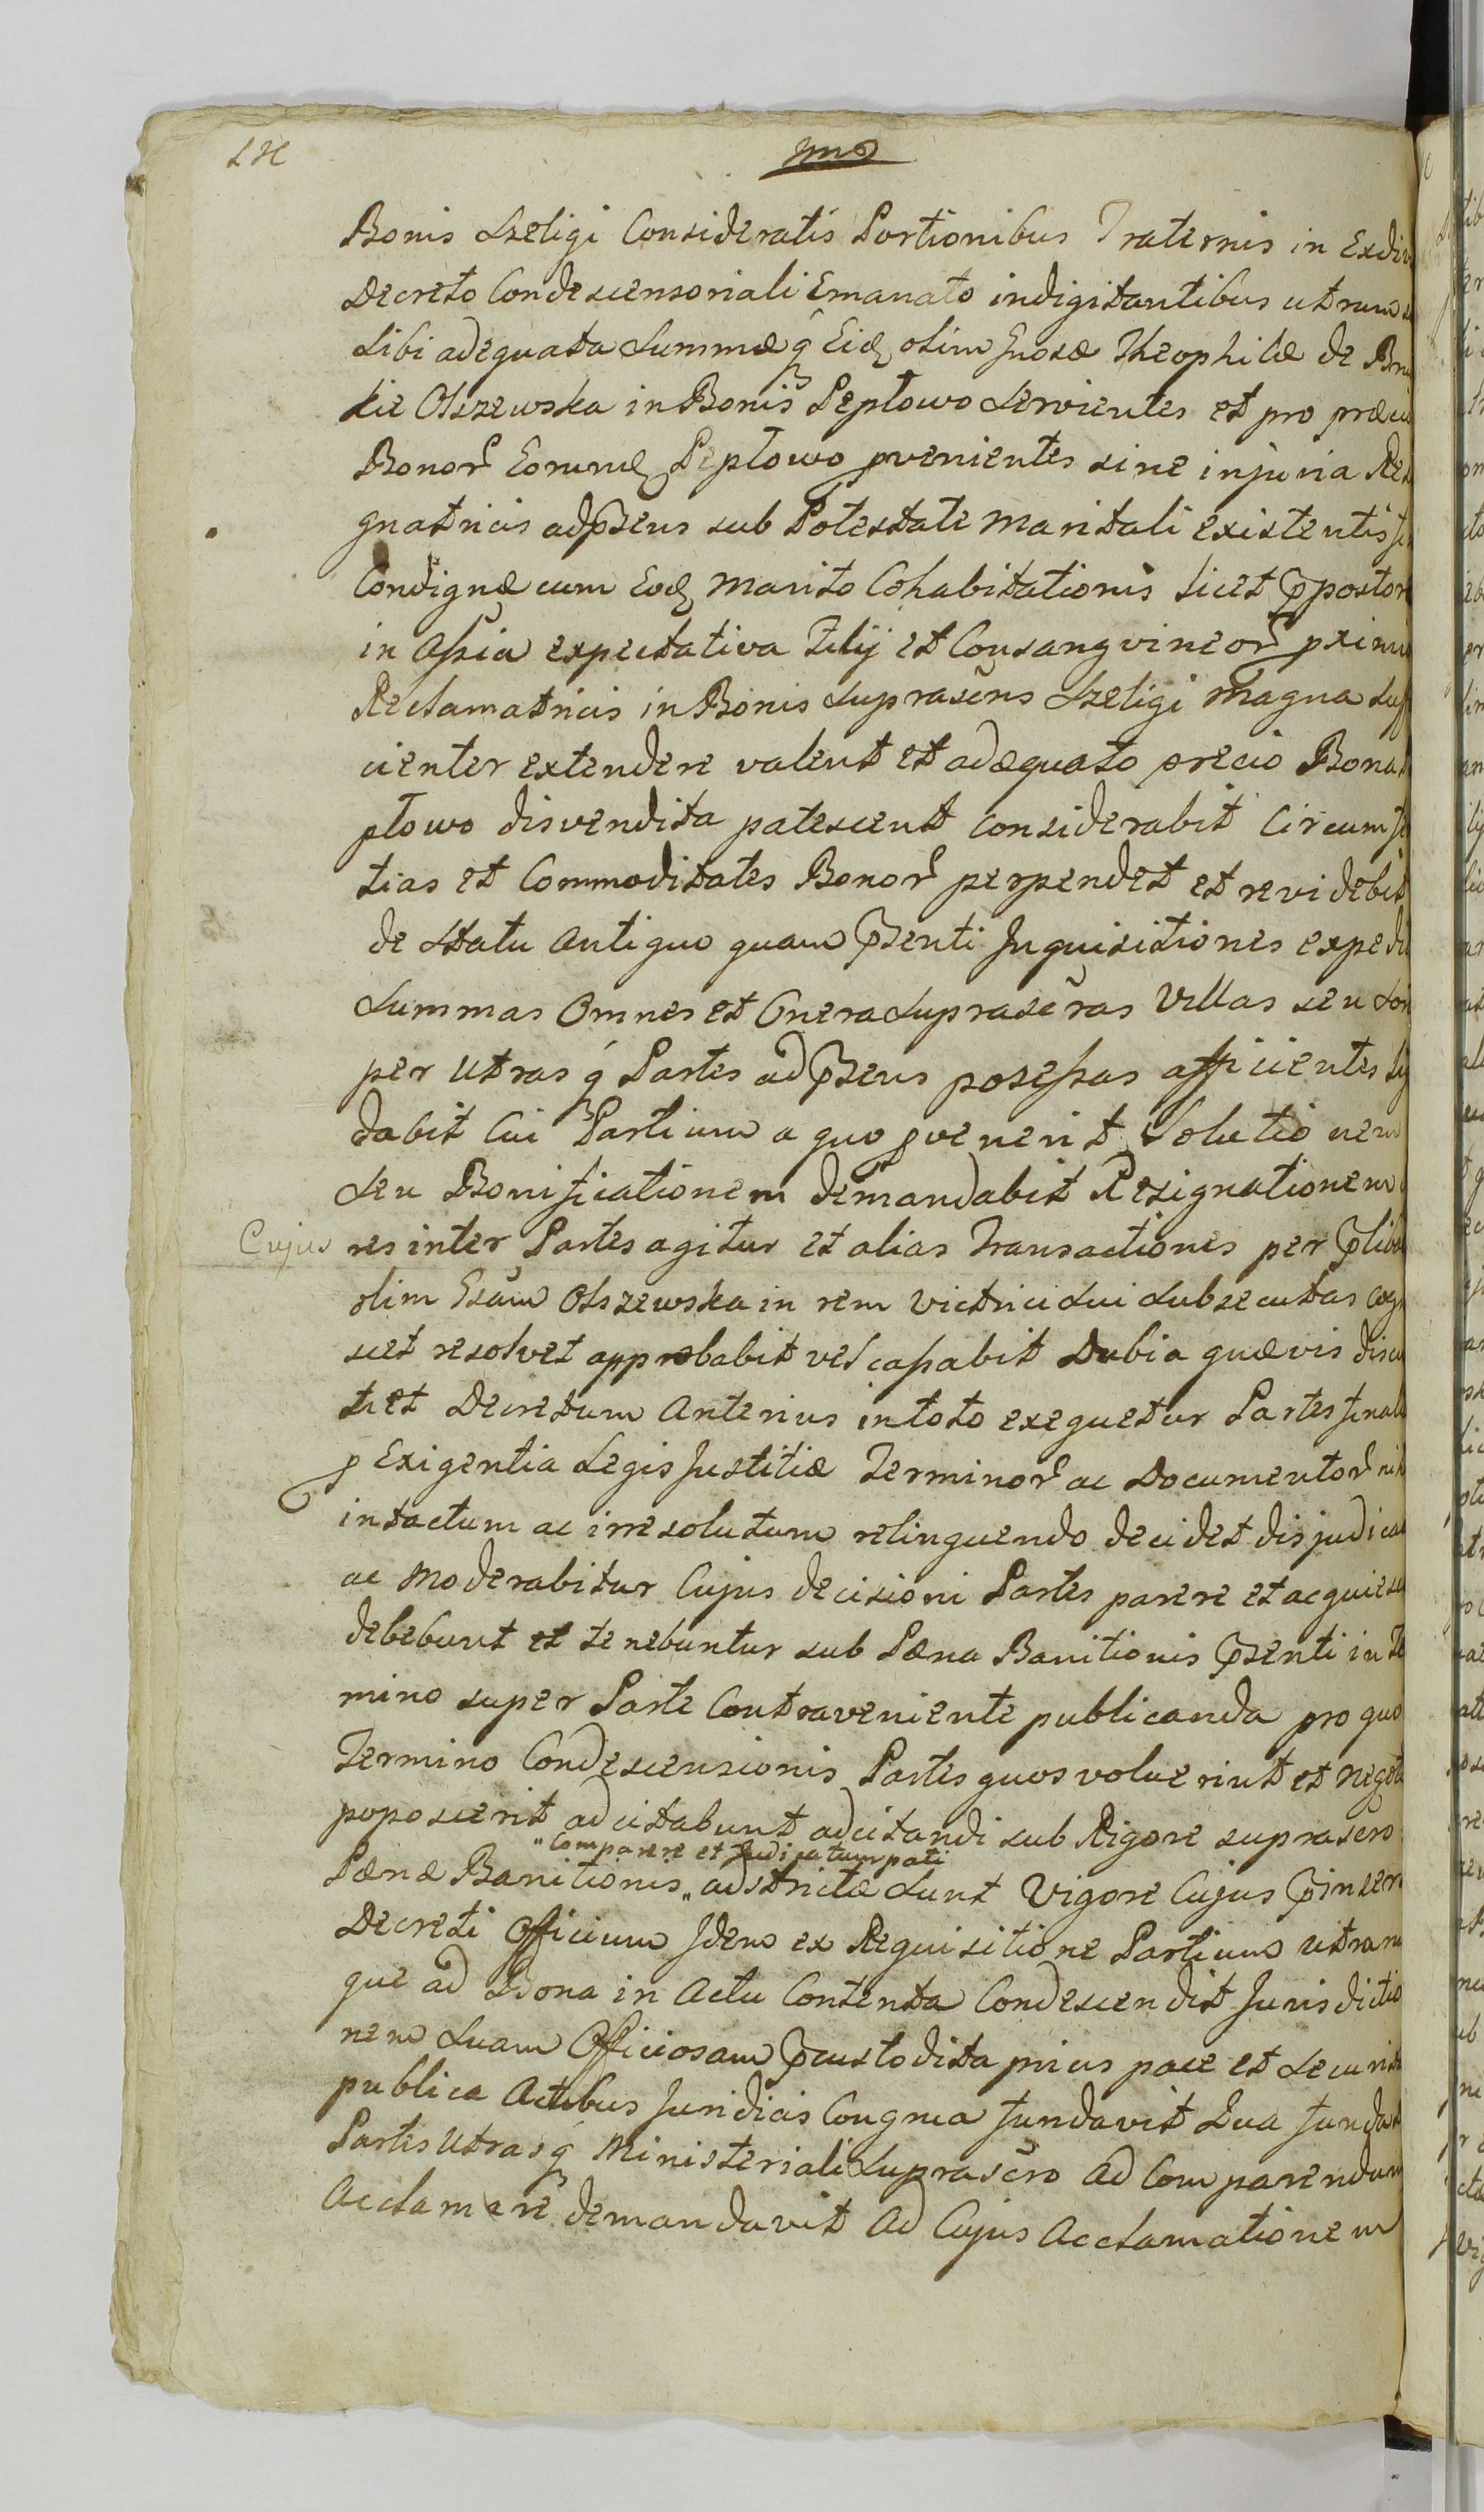 Bonis Szeligi Consideratis Portionibus Fraternis in Exdivi
Decreto Condescensoriali Emanato indigitantibus utrum
sibi adequata Summæq́ Eid olim Gnosæ Theophilæ de
kie Olszewska in Bonis Peptowo servientes et pro præcio
Bonor Eorumd Peptowo pvenientes sine injuria Resi
gnatricis adpsens sub Potestate Maritali existentis
Condignæ cum Eod Marito Cohabitationis licet
in expectativa Filij et Consangvineor
Reclamatricis in Bonis Suprascris Szeligi Magna Suffi
cienter extendere valent et adæquato precio Bona
ptowo disvendita patescent considerabit Circumstan
tias et Commoditates Bonor perpendet et revidebit
de Statu Antiquo quam psenti Inquisitiones expedi
Summas Omnes et Onera Suprascras Villas seu
per Utrasq́ Partes adpsens possessas afficientes
dabit Cui Partium a quo pvenerit Solutionem
seu Bonificationem demandabit Resignationem
Cujus res inter Partes agitur et alias Transactiones per
olim Olszewska in rem Victrici Sui Subsecutas Cogno
scet resolvet approbabit vel cassabit Dubia quævis discu
tiet Decretum Anterius in toto exequetur Partes
p Exigentia Legis Justitiæ Terminor ac Documentor nihil
intactum ac irresolutum relinquendo decidet disjudica
ac Moderabitur Cujus decisioni Partes parere et acquiescere
debebunt et tenebuntur sub Pæna Banitionis psenti in Te
mino super Parte Contraveniente publicanda pro quo
Termino Condescensionis Partes quos voluerint et Negotium
poposcerit adcitabunt adcitandi sub Rigore suprascro
"Comparere et Judicatum pati
Pænæ Banitionis "adstrictæ Sunt Vigore Cujus pinserti
Decreti Officium Idem ex Requisitione Partium utrarum
que ad Bona in Actu Contenta Condescendit Jurisdictio
nem Suam Officiosam pcustodita prius pace et Securitate
publica Actibus Juridicis Congrua fundavit Qua fundata
Partes Utrasq́ Ministeriali Suprascro ad Comparendum
Acclamare demandavit Ad Cujus Acclamationem